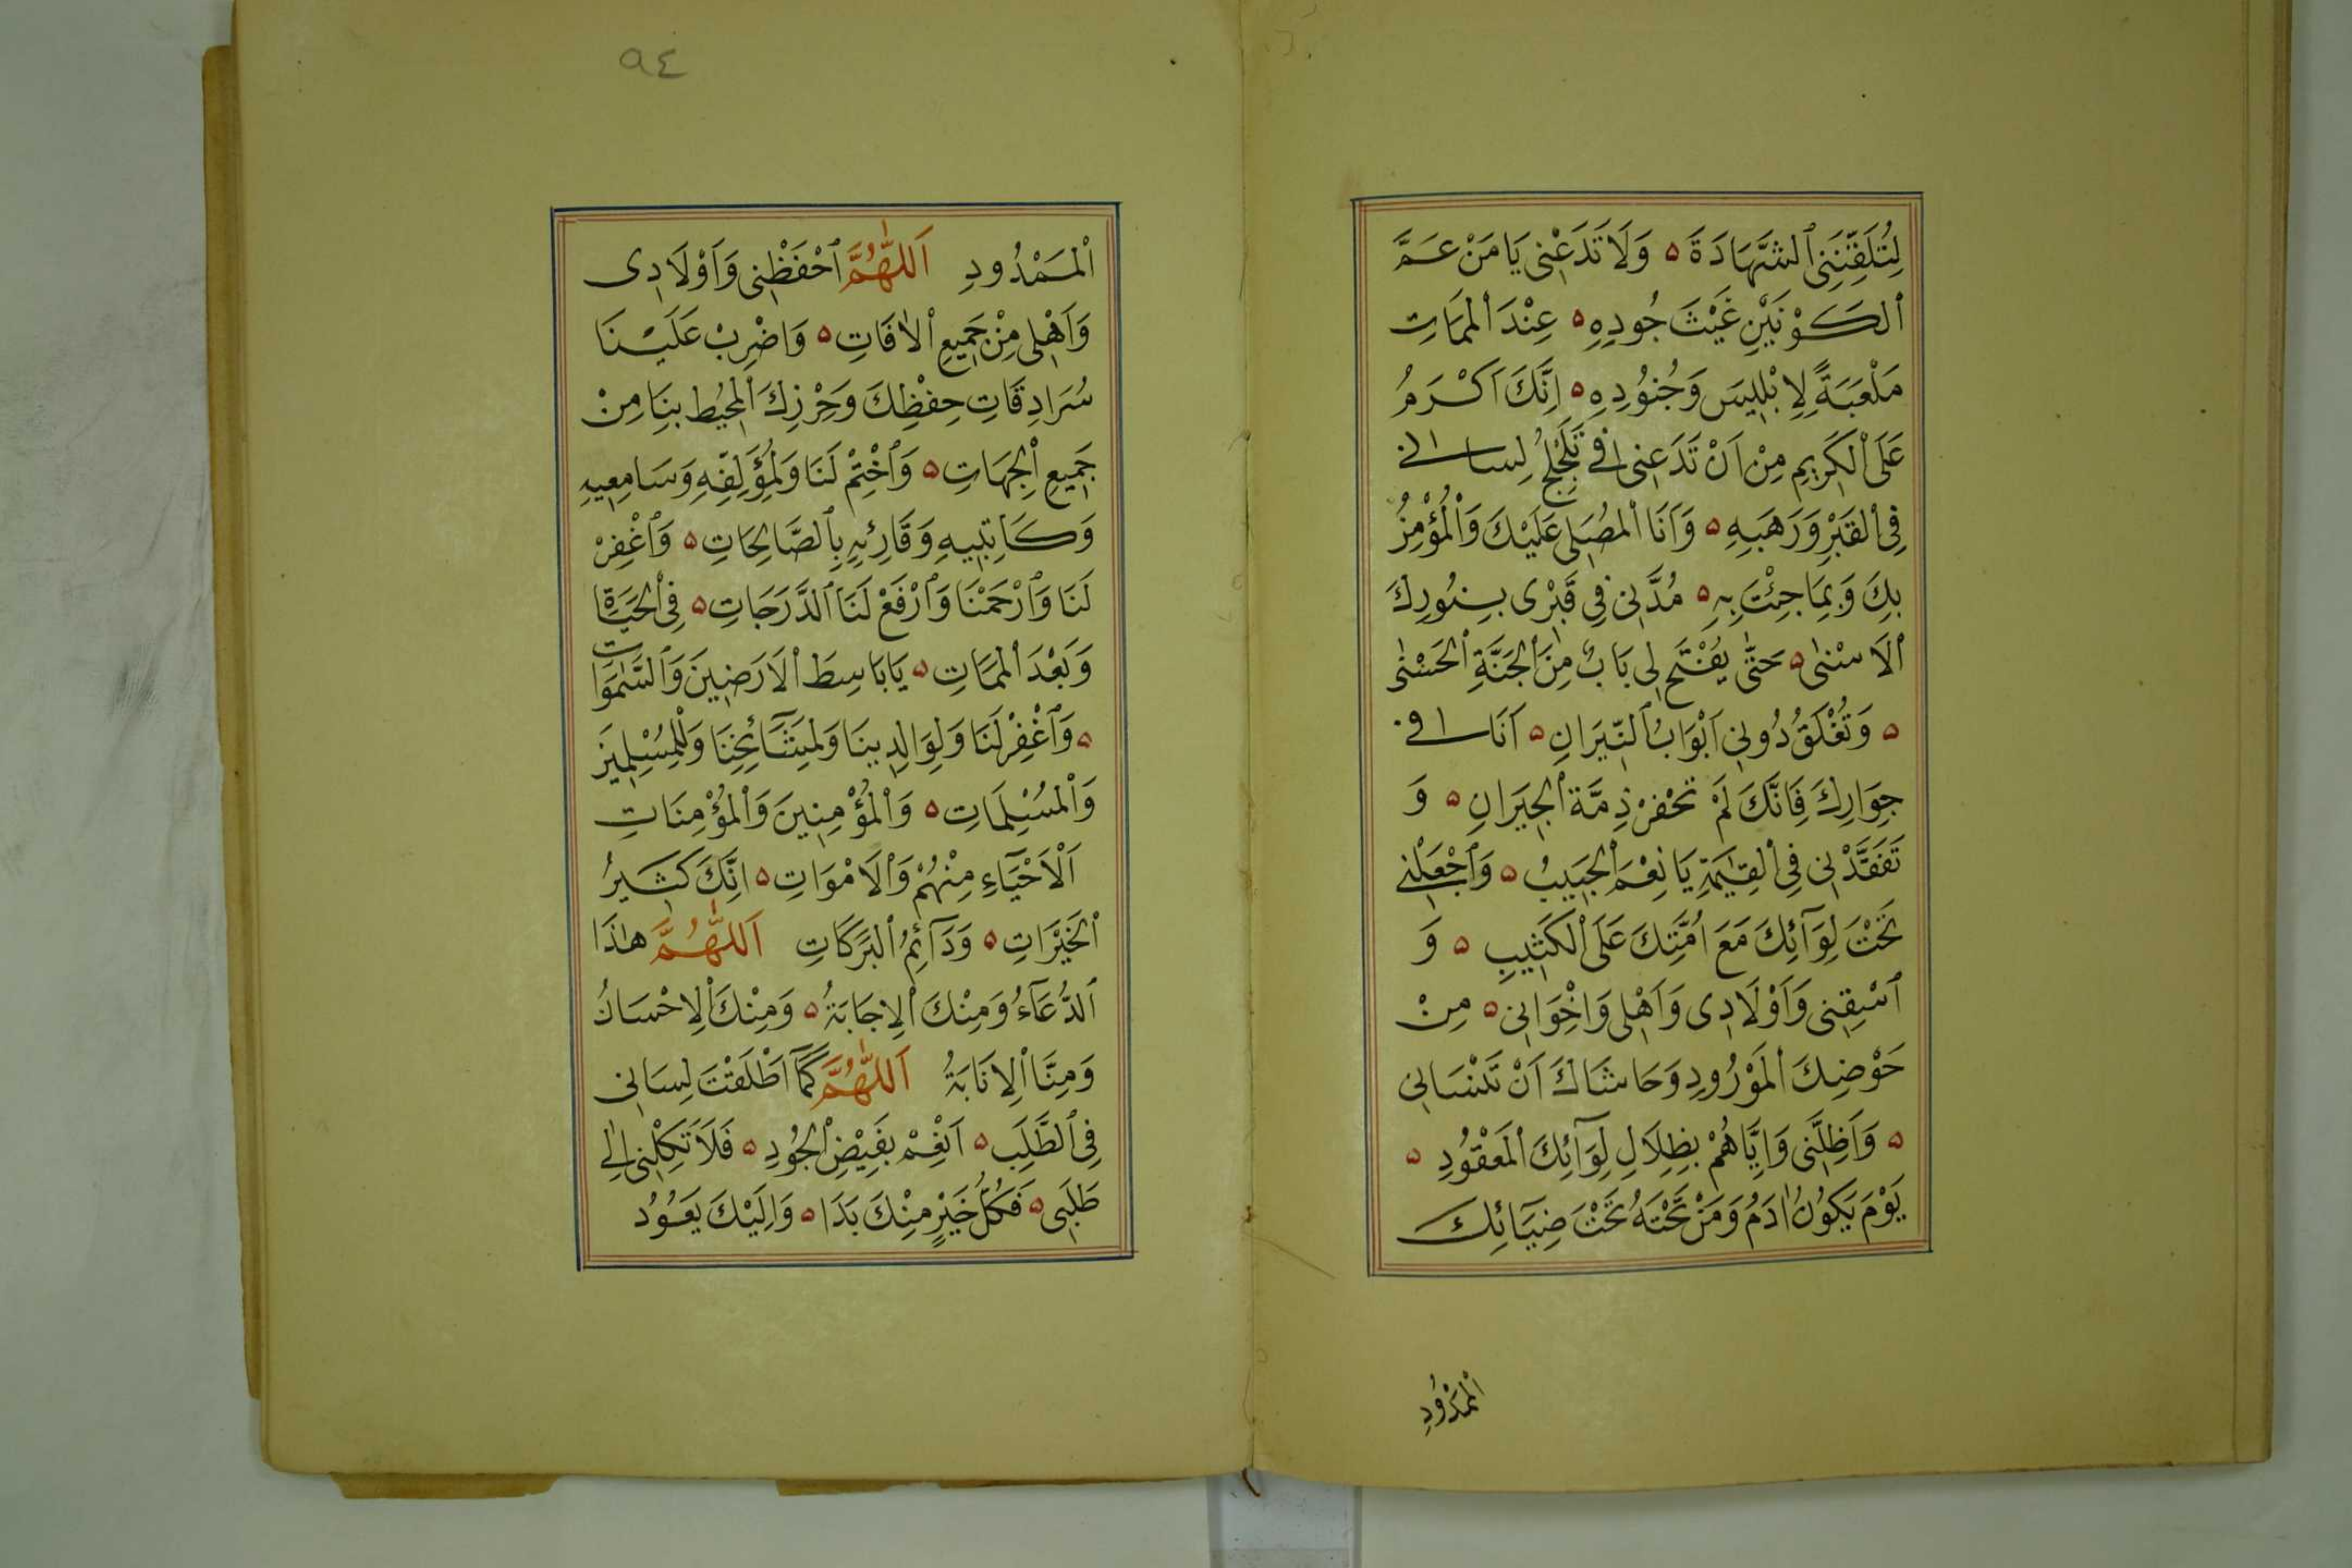 لِتُلَقِّنَنِى ٱلشَّهَادَةَ ۵ وَلَا تَدَعْنِى يَا مَنْ عَمَّ
ٱلْكَوْنَيْنِ غَيْثَ جُودِهِ ۵ عِنْدَ ٱلْمَمَاتِ
مَلْعَبَةً لِاِبْلِيسَ وَجُنُودِهِ ۵ اِنَّكَ اَكْرَمُ
عَلَى ٱلْكَرِيمِ مِنْ اَنْ تَدَعَنِى فِى تَلَجْلُجِ لِسَانِى
فِى ٱلْقَبْرِ وَرَهَبِهِ ۵ وَاَنَا ٱلْمُصَلِّى عَلَيْكَ وَٱلْمُؤْمِنُ
بِكَ وَبِمَا جِئْتَ بِهِ ۵ مُدَّنِى فِى قَبْرِى بِنُورِكَ
ٱلْاَسْنٰى ۵ حَتّٰى يُفْتَحَ لِى بَابٌ مِنَ ٱلْجَنَّةِ ٱلْحُسْنٰى
۵ وَتُغْلَقُ دُونِى اَبْوَابُ ٱلنِّيرَانِ ۵ اَنَا فِى
جِوَارِكَ فَاِنَّكَ لَمْ تَخْفِرْ ذِمَّةَ ٱلْجِيرَانِ ۵ وَ
تَفَقَّدْنِى فِى ٱلْقِيٰمَةِ يَا نِعْمَ ٱلْحَبِيبُ ۵ وَٱجْعَلْنِى
تَحْتَ لِوَآئِكَ مَعَ اُمَّتِكَ عَلَى ٱلْكَثِيبِ ۵ وَ
ٱسْقِنِى وَاَوْلَادِى وَاَهْلِى وَاِخْوَانِى ۵ مِنْ
حَوْضِكَ ٱلْمَوْرُودِ وَحَاشَاكَ اَنْ تَنْسَانِى
۵ وَاَظِلَّنِى وَاِيَّاهُمْ بِظِلَالِ لِوَآئِكَ ٱلْمَعْقُودِ ۵
يَوْمَ يَكُونُ اٰدَمُ وَمَنْ تَحْتَهُ تَحْتَ ضِيَآئِكَ
ٱلْمَمْدُودِ
٩٤
ٱلْمَمْدُودِ اَللّٰهُمَّ ٱحْفَظْنِى وَاَوْلَادِى
وَاَهْلِى مِنْ جَمِيعِ ٱلْاٰفَاتِ ۵ وَاضْرِبْ عَلَيْنَا
سُرَادِقَاتِ حِفْظِكَ وَحِرْزِكَ ٱلْمُحِيطِ بِنَا مِنْ
جَمِيعِ ٱلْجِهَاتِ ۵ وَٱخْتِمْ لَنَا وَلِمُؤَلِّفِهِ وَسَامِعِيهِ
وَكَاتِبِيهِ وَقَارِئِيهِ بِٱلصَّالِحَاتِ ۵ وَٱغْفِرْ
لَنَا وَٱرْحَمْنَا وَٱرْفَعْ لَنَا ٱلدَّرَجَاتِ ۵ فِى ٱلْحَيَاةِ
وَبَعْدَ ٱلْمَمَاتِ ۵ يَا بَاسِطَ ٱلْاَرَضِينَ وَٱلسَّمٰوَاتِ
۵ وَٱغْفِرْ لَنَا وَلِوَالِدِينَا وَلِمَشَآئِخِنَا وَلِلْمُسْلِمِينَ
وَٱلْمُسْلِمَاتِ ۵ وَٱلْمُؤْمِنِينَ وَٱلْمُؤْمِنَاتِ
اَلْاَحْيَآءِ مِنْهُمْ وَٱلْاَمْوَاتِ ۵ اِنَّكَ كَثِيرُ
ٱلْخَيْرَاتِ ۵ وَدَآئِمُ ٱلْبَرَكَاتِ اَللّٰهُمَّ هٰذَا
ٱلدُّعَآءُ وَمِنْكَ ٱلْاِجَابَةُ ۵ وَمِنْكَ ٱلْاِحْسَانُ
وَمِنَّا ٱلْاِنَابَةُ اَللّٰهُمَّ كَمَآ اَطْلَقْتَ لِسَانِى
فِى ٱلطَّلَبِ ۵ اَنْعِمْ بِفَيْضِ ٱلْجُودِ ۵ فَلَا تَكِلْنِى اِلٰى
طَلَبِى ۵ فَكُلُّ خَيْرٍ مِنْكَ بَدَا ۵ وَاِلَيْكَ يَعُودُ